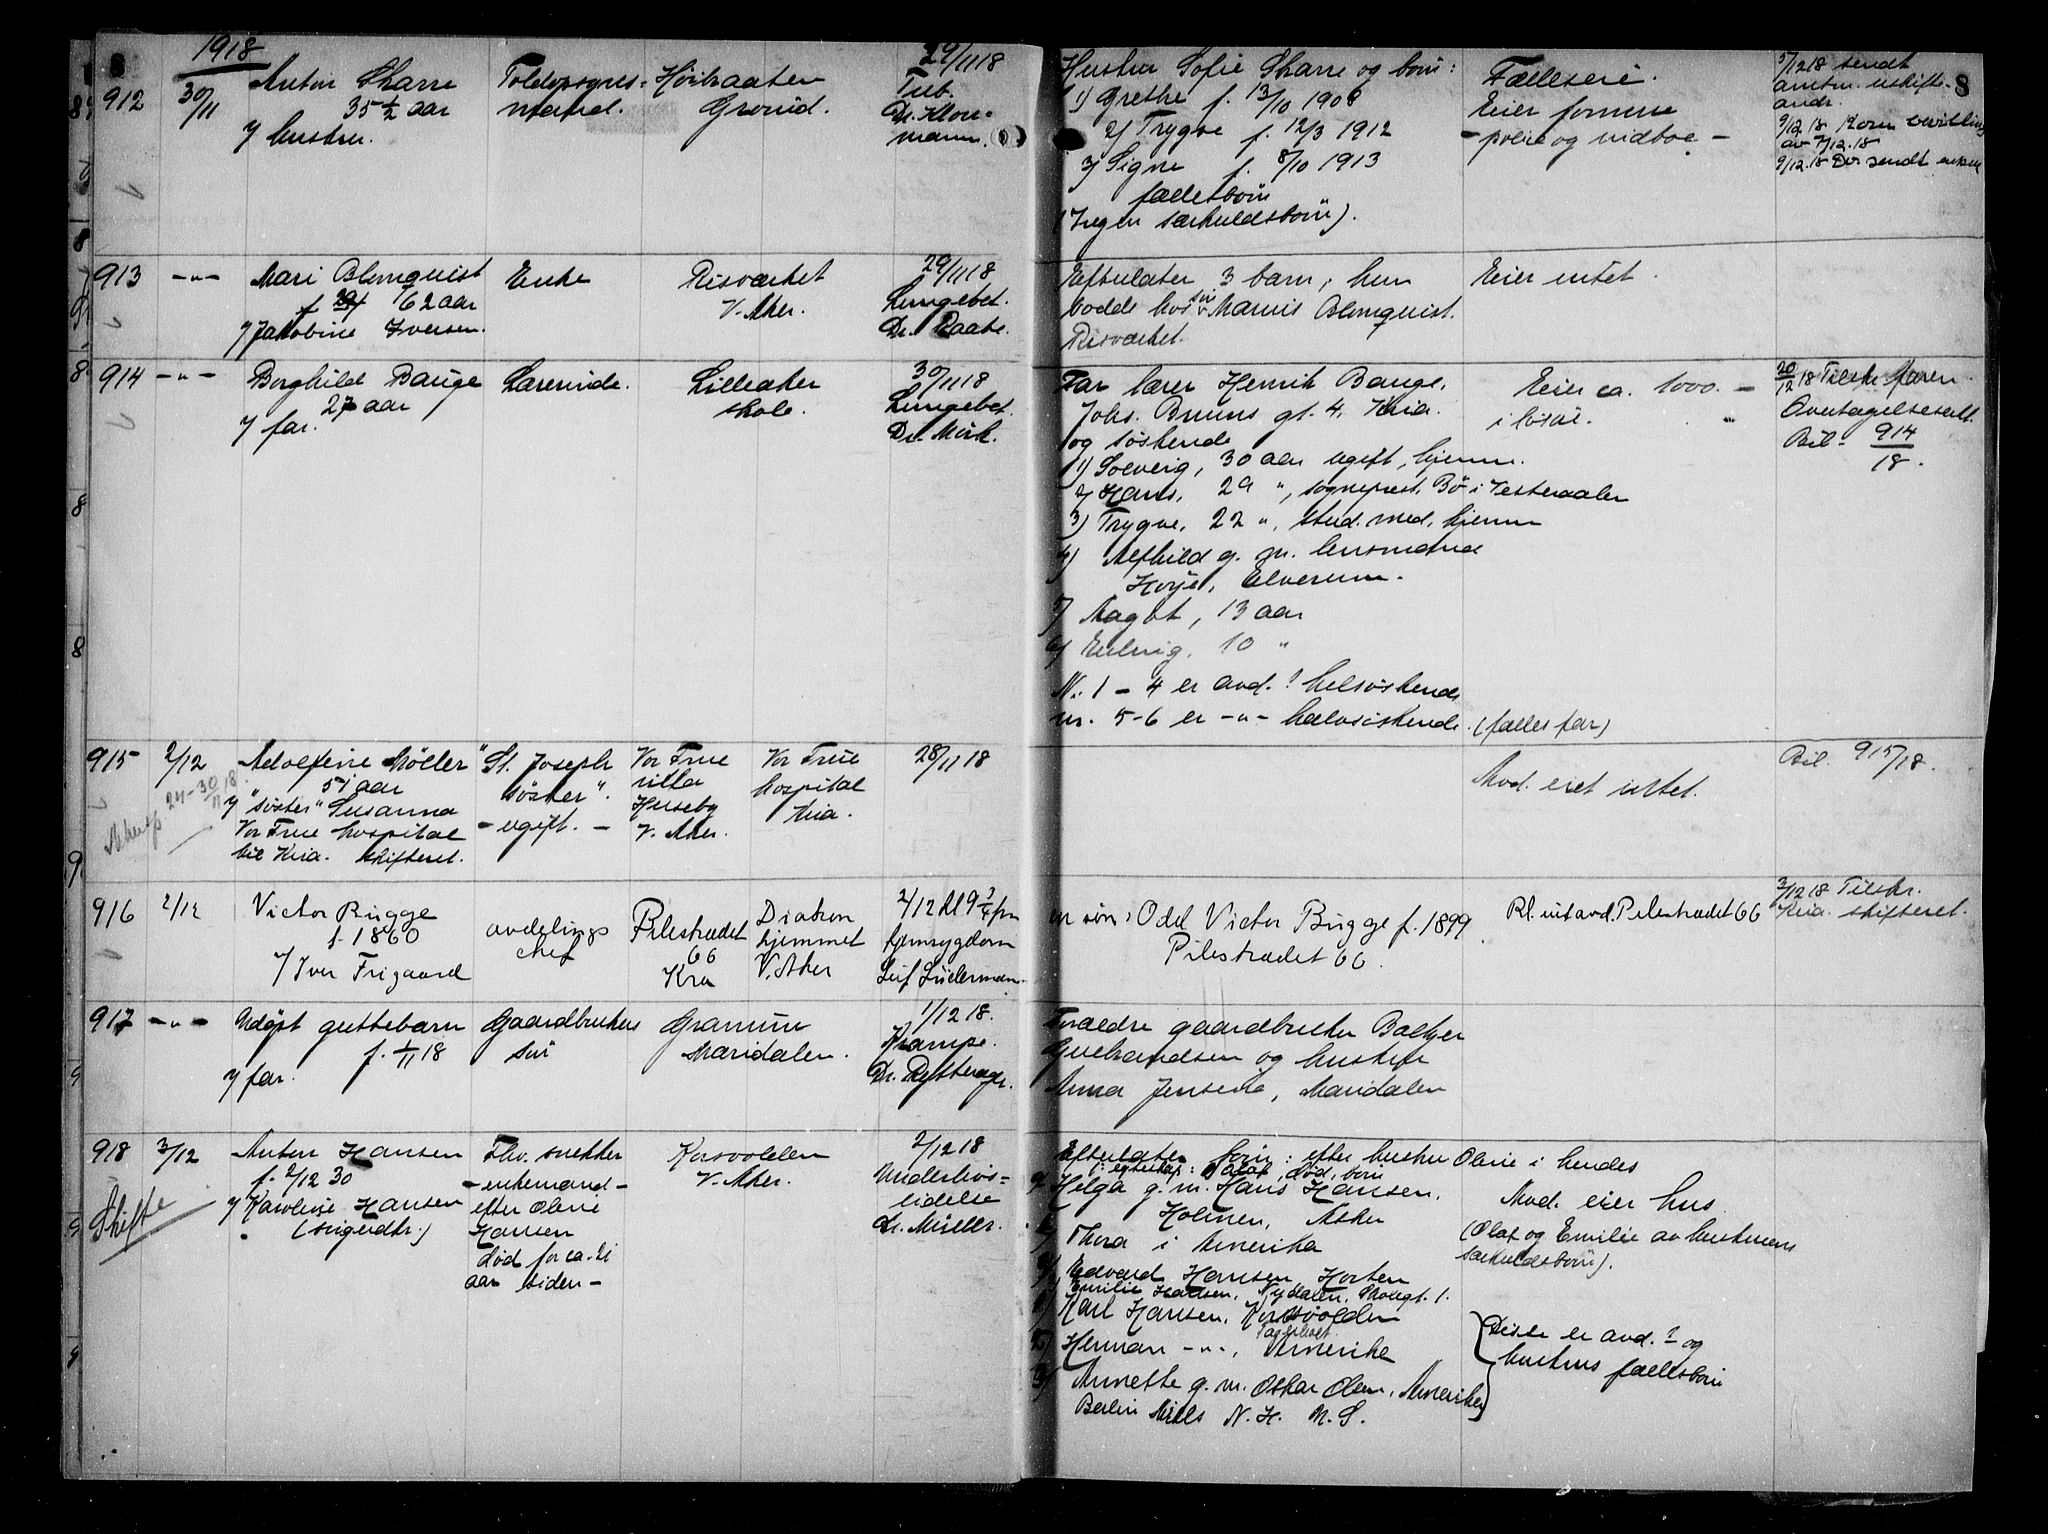 1918
912
30/11
Anton Skarre
35 ½ aar
v/ hustru.
Toldopsynsmand.
Høibraaten
Grorud.
29/11 18
Tub.
Hustru Sofie Skarre og børn:
1) Grethe f. 13/10 1908
2) Trygve f. 12/3 1912
3) Signe f. 8/10 1913
fællesbørn
(Ingen særkuldsbørn).
Fælleseie.
Eier
polise og indbo
5/12 18 sendt
9/12 18
av 7/12.18
9/12.18 sendt enken
913
-"-
Mari Blomquist
62 aar
v/ Jakobine Iversen.
Enke
Risværket
V. Aker.
29/11 18
Lungebet.
Dr. Raabe.
Efterlater 3 barn, hun
bodde hos Blomquist.
Risværket.
Eier intet.
914
-"-
Borghild Bauge
27 aar
v/ far.
Lærerinde.
Lilleaker
skole.
30/11 18
Lungebet.
Dr. Mørk.
Far lærer Henrik Bauge,
Johs. Bruns gt. 4, Kria.
og søskende
1) Solveig, 30 aar ugift, hjemme.
2) Hans, 29 ", sogneprest, Bø i Vesteraalen
3) Trygve, 22 ", stud. med. hjemme
4) Alfhild g. m. lensmand
Elverum.
5) Magot, 13 aar
6) 10 "
Nr. 1 - 4 er avd.? helsøskende
nr. 5-6 er -"- halvsøskende. (fælles far)
Eier ca. 1000. -
i løsøre.
20/12 18 Tilskr. faren.
Overtagelseserkl.
Bil. 914/18.
915
2/12
Adolfine Møller
51 aar
v/ "søster" Susanna
Vor Frue hospital
til Kria. skifteret.
"St. Joseph
søster".
- ugift. -
Vor Frue
villa
Huseby
V. Aker.
Vor Frue
hospital
Kria.
28/11 18
Avd. eiet intet.
Bil. 915/18.
916
2/12
Victor Bugge
f. 1860
v/ Iver Frigaard
avdelings
chef
Pilestrædet
66
Kra
Diakon
hjemmet
V. Aker
2/12 Kl 9 ¾ fm
hjernsygdom
Leif Lüderman.
en søn: Odd Victor Bugge f. 1899
Pilestrædet 66.
avd. Pilestrædet 66
3/12 18 Tilskr.
Kria. skifteret.
917
-"-
Udøpt guttebarn
f. 1/11 18
v/ far.
Gaardbrukers
søn
Granum
Maridalen.
1/12 18.
Krampe.
Forældre gaardbruker
Gulbrandsen og hustru
Anna Jensine, Maridalen
918
3/12
Skifte
Anton Hansen
f. 2/12 30
v/ Karoline Hansen
(svigerdtr.)
Fhv. snekker
- enkemand -
efter Oline
Hansen
død for ca. 21
aar siden -
Korsvolden
V. Aker.
2/12 18
Underlivslidelse
Dr. Müller.
Efterlater børn: efter hustru Oline i hendes
1. egteskap: Olaf, død, børn
Helga g. m. Hans Hansen,
Holmen, Asker
Thora i Amerika
Edvard Hansen, Horten
Emilie Hansen, Nydalen, Skougt. 1.
Karl Hansen, Korsvolden
Herman -"-, Amerika
Annette g. m. Oskar Olsen, Amerika
Berlin Mills N. H. N. S.
Avd. eier hus
(Olaf og Emilie av hustruens
særkuldsbørn).
Disse er avd. og
hustrus fællesbørn